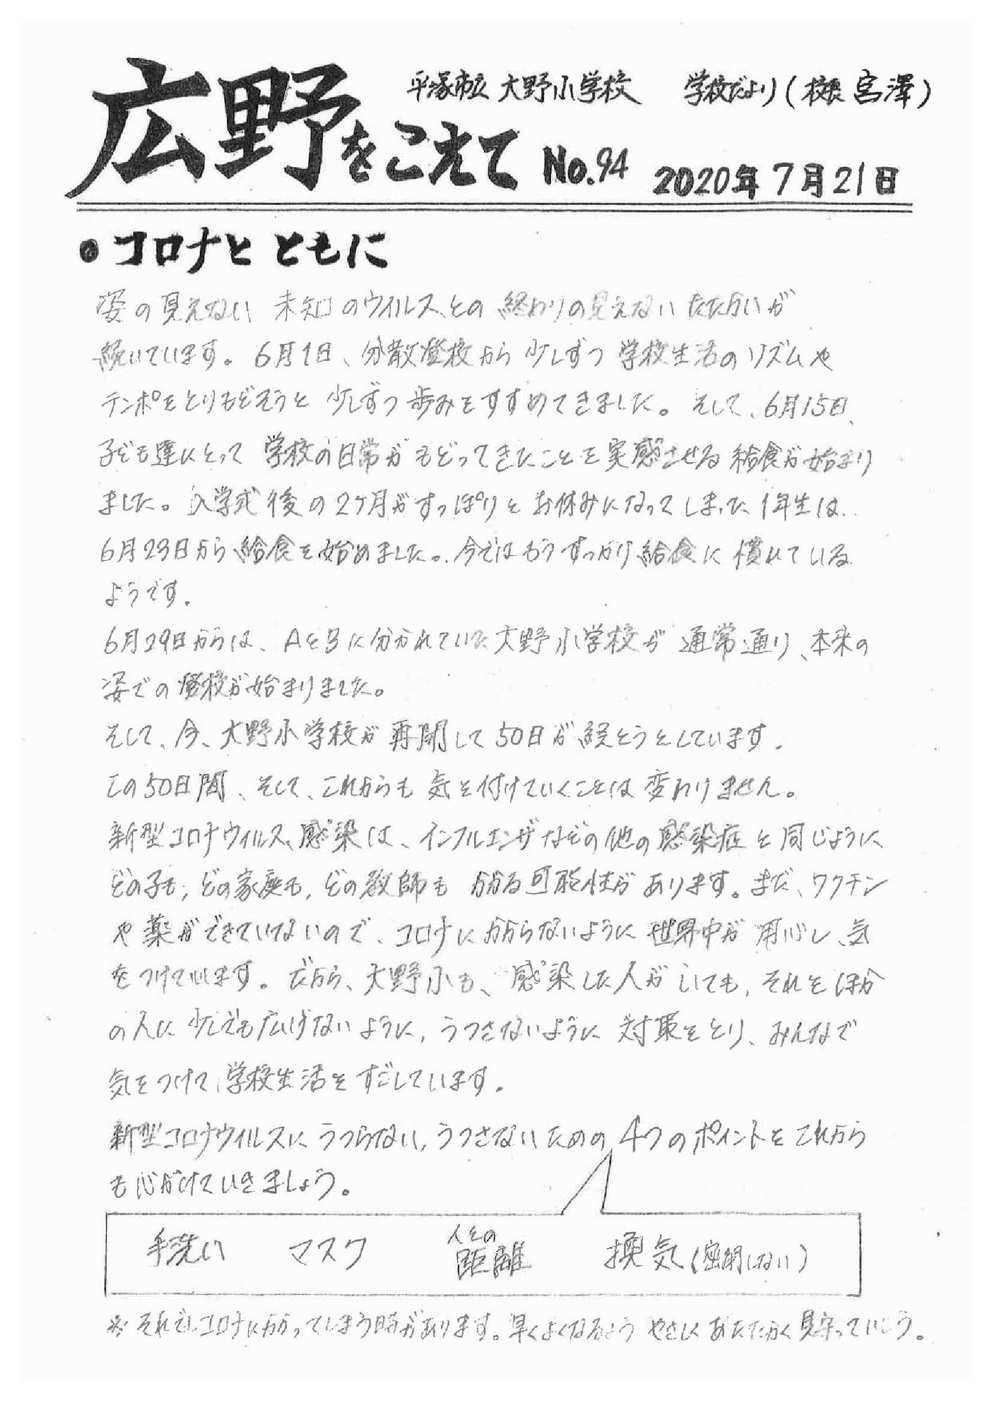 平塚市立 大野小学校　学校だより(校長 宮澤)
広野をこえて No.94 2020年7月21日
●コロナと ともに
姿の見えない 未知のウイルスとの 終わりの見えない たたかいが
続いています。6月1日、分散登校から 少しずつ 学校生活のリズムや
テンポをとりもどそうと 少しずつ 歩みをすすめてきました。そして、6月15日、
子ども達にとって 学校の日常が もどってきたことを 実感させる 給食が始まり
ました。入学式後の2ヶ月がすっぽりと お休みになってしまった 1年生は、
6月23日から 給食を始めました。今ではもうすっかり 給食に 慣れている
ようです。
6月29日からは、AとBに分かれていた大野小学校が 通常通り、本来の
姿での登校が始まりました。
そして、今、大野小学校が 再開して50日が 経とうとしています。
この50日間、そして、これからも 気を付けていくことは 変わりません。
新型コロナウイルス感染は、インフルエンザなどの他の感染症と同じように
どの子も、どの家庭も、どの教師も かかる可能性が あります。まだ、ワクチン
や薬ができていないので、コロナにかからないように 世界中が 用心し、気
をつけています。だから、大野小も、感染した人がいても、それをほか
の人に 少しでも広げないように、うつさないように 対策をとり、みんなで
気をつけて、学校生活を すごしています。
新型コロナウイルスに うつらない、うつさないための 4つのポイントを これから
も心がけていきましょう。
手洗い　マスク　人との距離　換気(密閉しない)
※それでもコロナにかかってしまう時があります。早くよくなるよう やさしく あたたかく 見守っていこう。